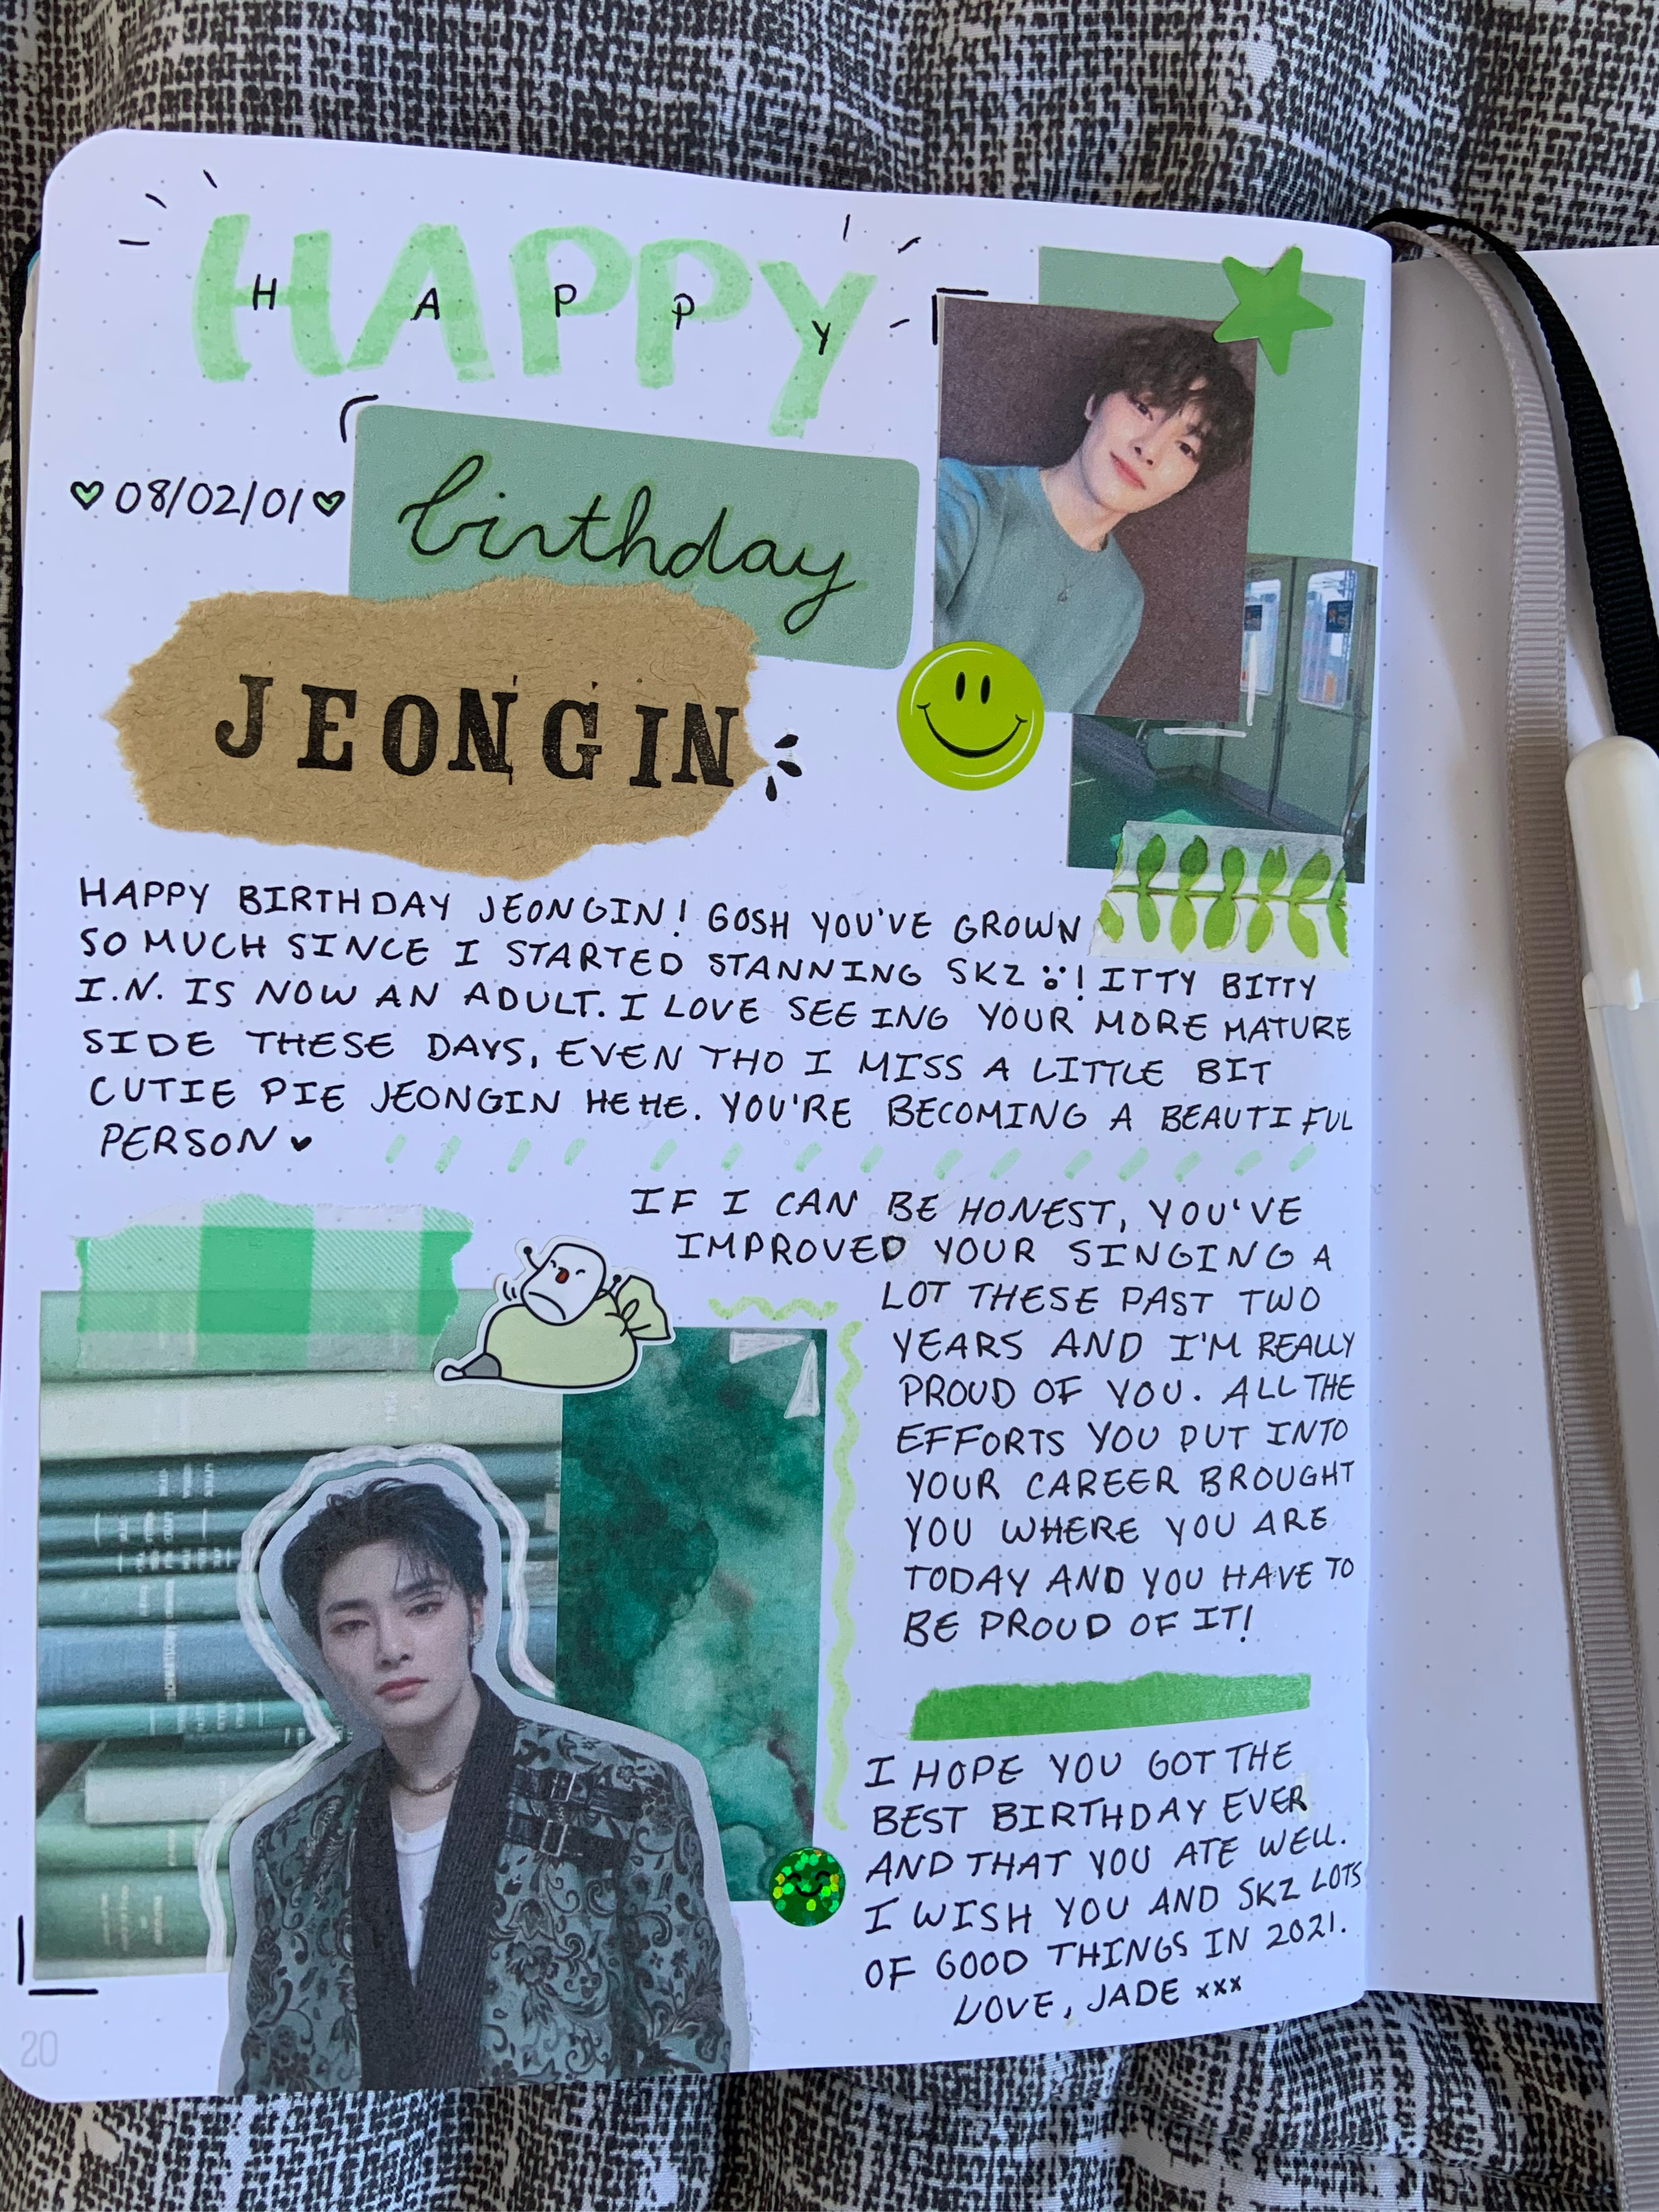 HAPPY
H A P P Y
08/02/01
birthday
JEONGIN
HAPPY BIRTHDAY JEONGIN! GOSH YOU'VE GROWN
SO MUCH SINCE I STARTED STANNING SKZ ! ITTY BITTY
I.N. IS NOW AN ADULT. I LOVE SEEING YOUR MORE MATURE
SIDE THESE DAYS, EVEN THO I MISS A LITTLE BIT
CUTIE PIE JEONGIN HEHE. YOU'RE BECOMING A BEAUTIFUL
PERSON ♥
IF I CAN BE HONEST, YOU'VE
IMPROVED YOUR SINGING A
LOT THESE PAST TWO
YEARS AND I'M REALLY
PROUD OF YOU. ALL THE
EFFORTS YOU PUT INTO
YOUR CAREER BROUGHT
YOU WHERE YOU ARE
TODAY AND YOU HAVE TO
BE PROUD OF IT!
I HOPE YOU GOT THE
BEST BIRTHDAY EVER
AND THAT YOU ATE WELL.
I WISH YOU AND SKZ LOTS
OF GOOD THINGS IN 2021.
LOVE, JADE xxx
20